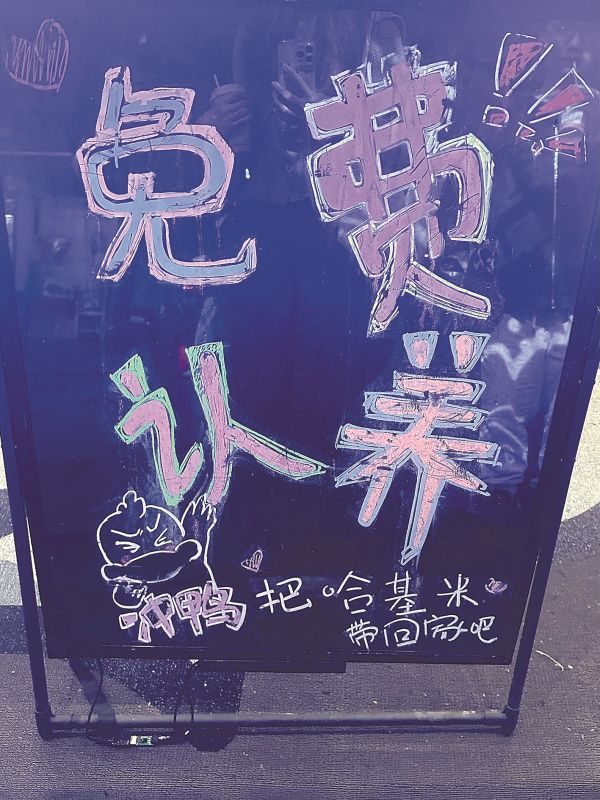 免费
认养
冲鸭 把哈基米
带回家吧